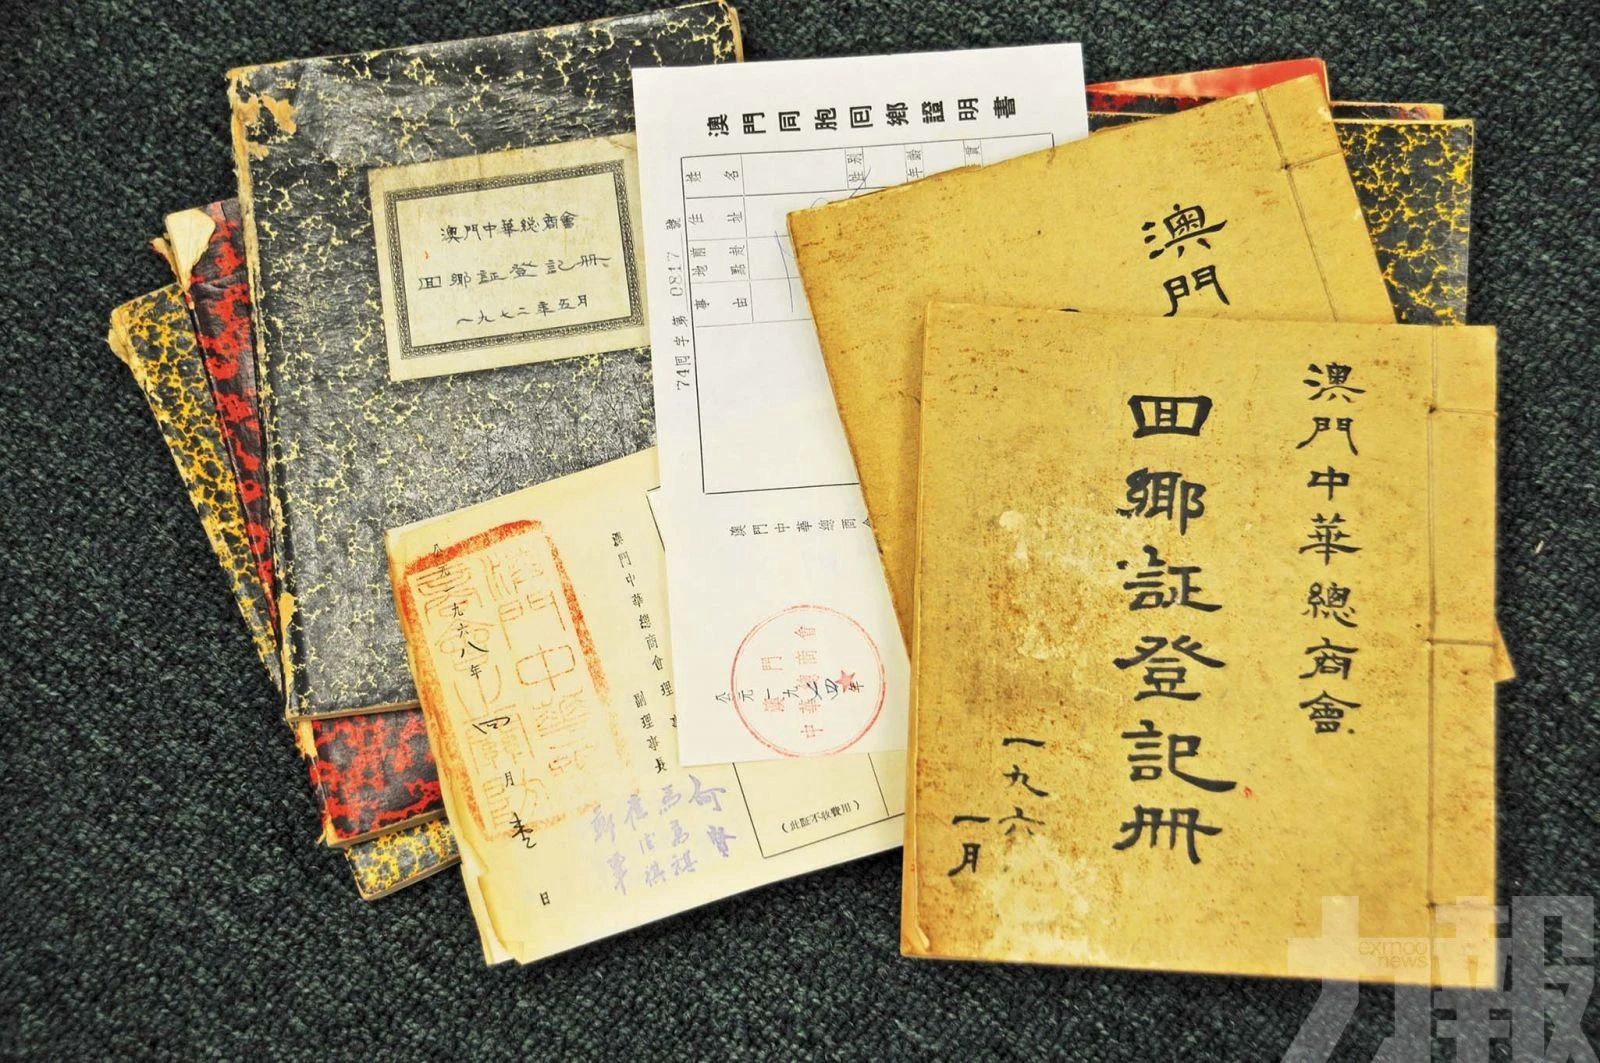 澳門中華総商會
回鄉証登記冊
一九七二年五月
澳門同胞回鄉證明書
姓名
性別
年齡
住址
前赴地點
事由
74回字第0817號
澳門中華總商會
公元一九七四年
澳門中華總商會
公元一九六八年四月
日
澳門中華總商會理事長
副理事長
(此証不收費用)
澳門
澳門中華總商會
回鄉証登記冊
一九六
一月
力報
exmoo
news